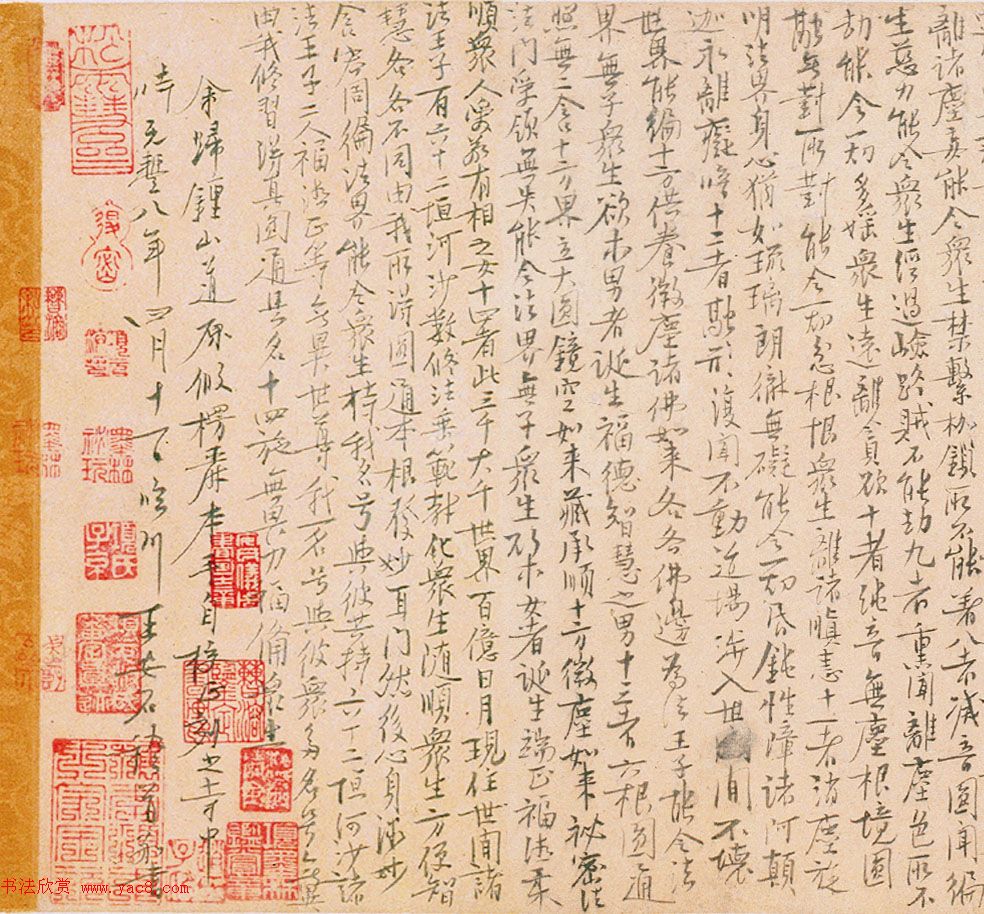 離諸塵妄能令眾生禁繫枷鎖所不能著八者滅音圓聞遍
生慈力能令眾生經過嶮路賊不能劫九者熏聞離塵色所不
劫能令一切多婬眾生遠離貪欲十者純音無塵根境圓
融無對所對能令一切忿恨眾生離諸瞋恚十一者消塵旋
明法界身心猶如瑠璃朗徹無礙能令一切昏鈍性障諸阿顛
迦永離癡暗十二者融形復聞不動道場涉入世間不壞
世界能遍十方供養微塵諸佛如來各各佛邊為法王子能令法
界無子眾生欲求男者誕生福德智慧之男十三者六根圓通
照無二含十方界立大圓鏡空如來藏承順十方微塵如來祕密法
法門受領無失能令法界無子眾生欲求女者誕生端正福德柔
順眾人愛敬有相之女十四者此三千大千世界百億日月現住世間諸
法王子有六十二恒河沙數修法垂範教化眾生隨順眾生方便智
慧各各不同由我所得圓通本根發妙耳門然後心身微妙
含容周遍法界能令眾生持我名號與彼共持六十二恒河沙諸
法王子二人福德正等無異世尊我一名號與彼眾多名號無異
由我修習得真圓通是名十四施無畏力福備眾生
余歸鍾山道原假楞嚴本手自校正刻之寺中
時元豐八年四月十一日臨川王安石稽首敬書
項氏子京
墨林祕玩
书法欣赏 www.yac8.com